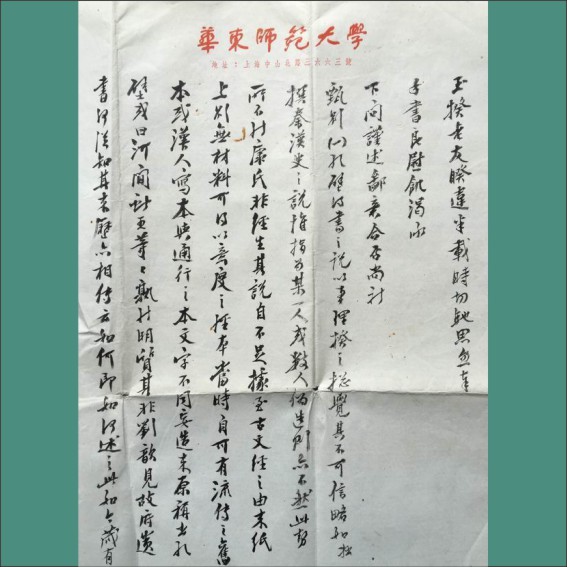 華東師范大學
地址：上海中山北路三六六三號
玉揆老友睽違半載時切馳思忽奉
手書良慰飢渴承
下問謹述鄙意合否尚
甄別以孔壁得書之說以事理揆之總覺其不可信
撰秦漢史之說惟指為某一人或數人偽造則亦不然此
所不康氏非經生其說自不足據至古文經之由來紙
上別無材料可得以意度之經本當時自可有流傳之舊
本或漢人寫本與通行之本文字不同妄造來原稱出孔
壁或曰河間其非劉歆見故府遺
書知其來歷亦相傳云如何即如何述之此如今藏有